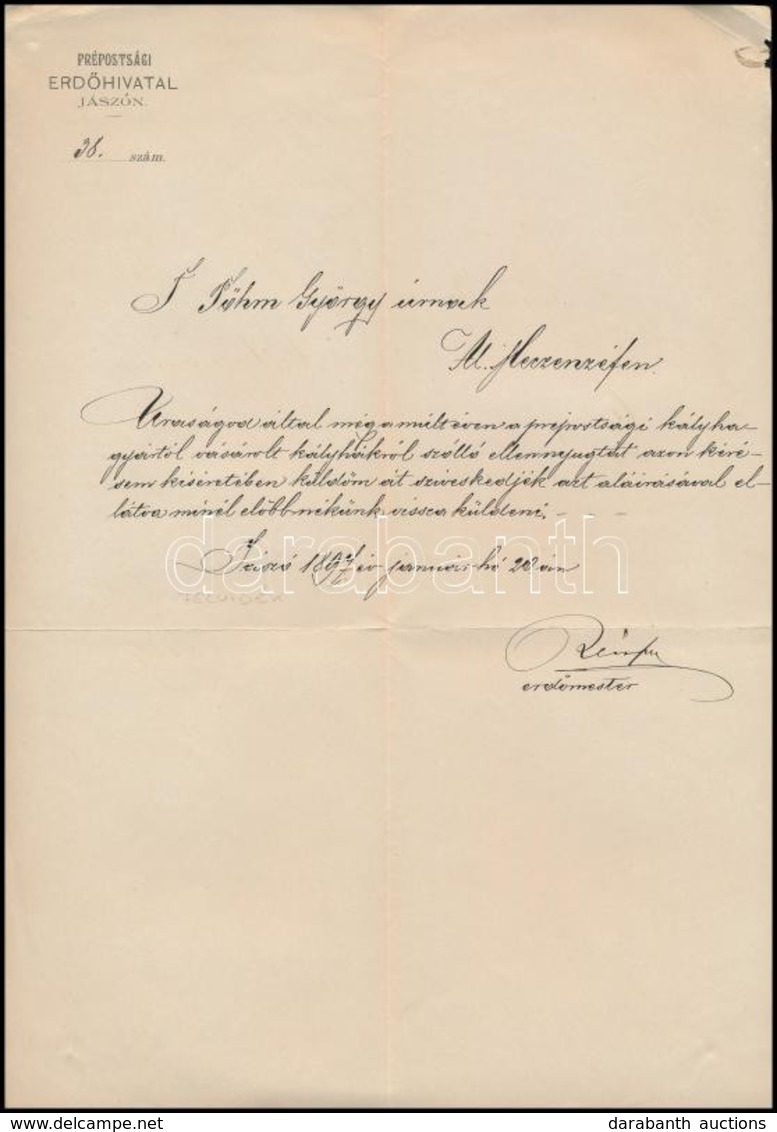 PRÉPOSTSÁGI
ERDŐHIVATAL
JÁSZÓN.
38. szám.
T Főhm György úrnak
M. Meczenzéfen.
Uraságod által még a múlt éven a prépostsági kályha-
gyártól vásárolt kályhákról szólló ellennyugtát azon kéré-
sem kiséretében küldöm át sziveskedjék azt aláirásával el-
látva minél előbb nékünk vissza küldeni.
Jászó 1897 év január hó 20 án
erdőmester
darabanth
darabanth auctions